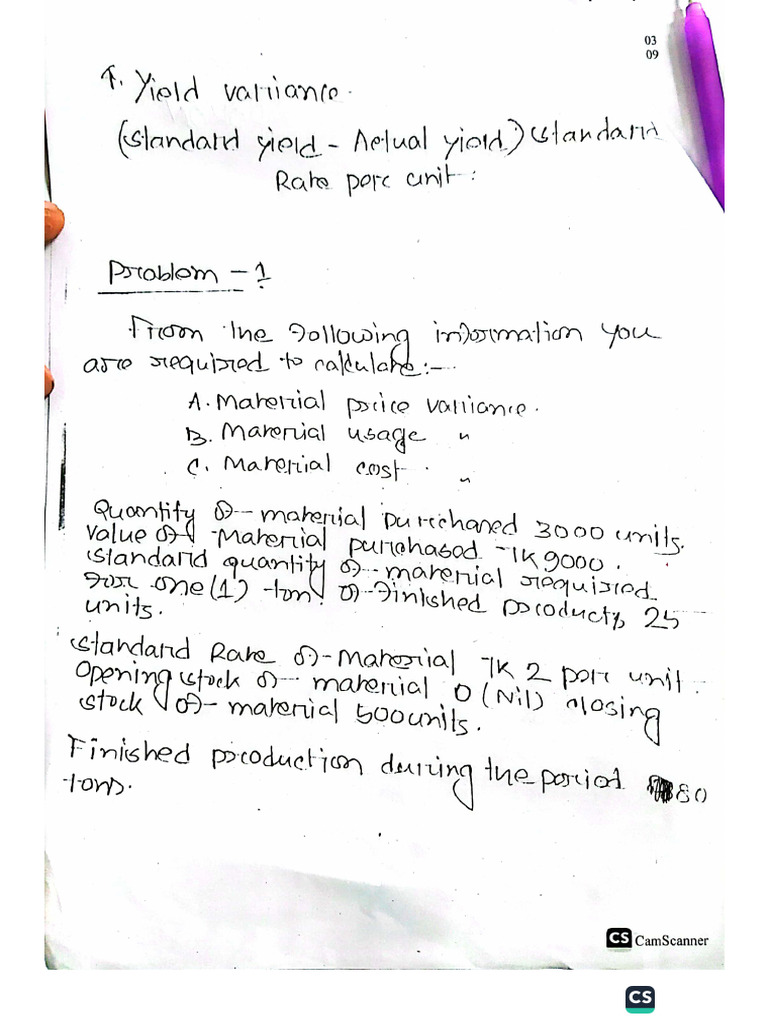 03
09
Yield variance.
(Standard yield - Actual yield) standard
Rate per unit:
Problem - 1
From the following information you
are required to calculate:-
A. Material price variance.
B. Material usage "
C. Material cost. "
Quantity of material purchased 3000 units.
Value of Material purchased TK 9000.
Standard quantity of material required
for one (1) ton of Finished product, 25
units.
Standard Rate of Material TK 2 per unit.
Opening stock of material 0 (Nil) closing
stock of material 500 units.
Finished production during the period 80
tons.
CS CamScanner
CS